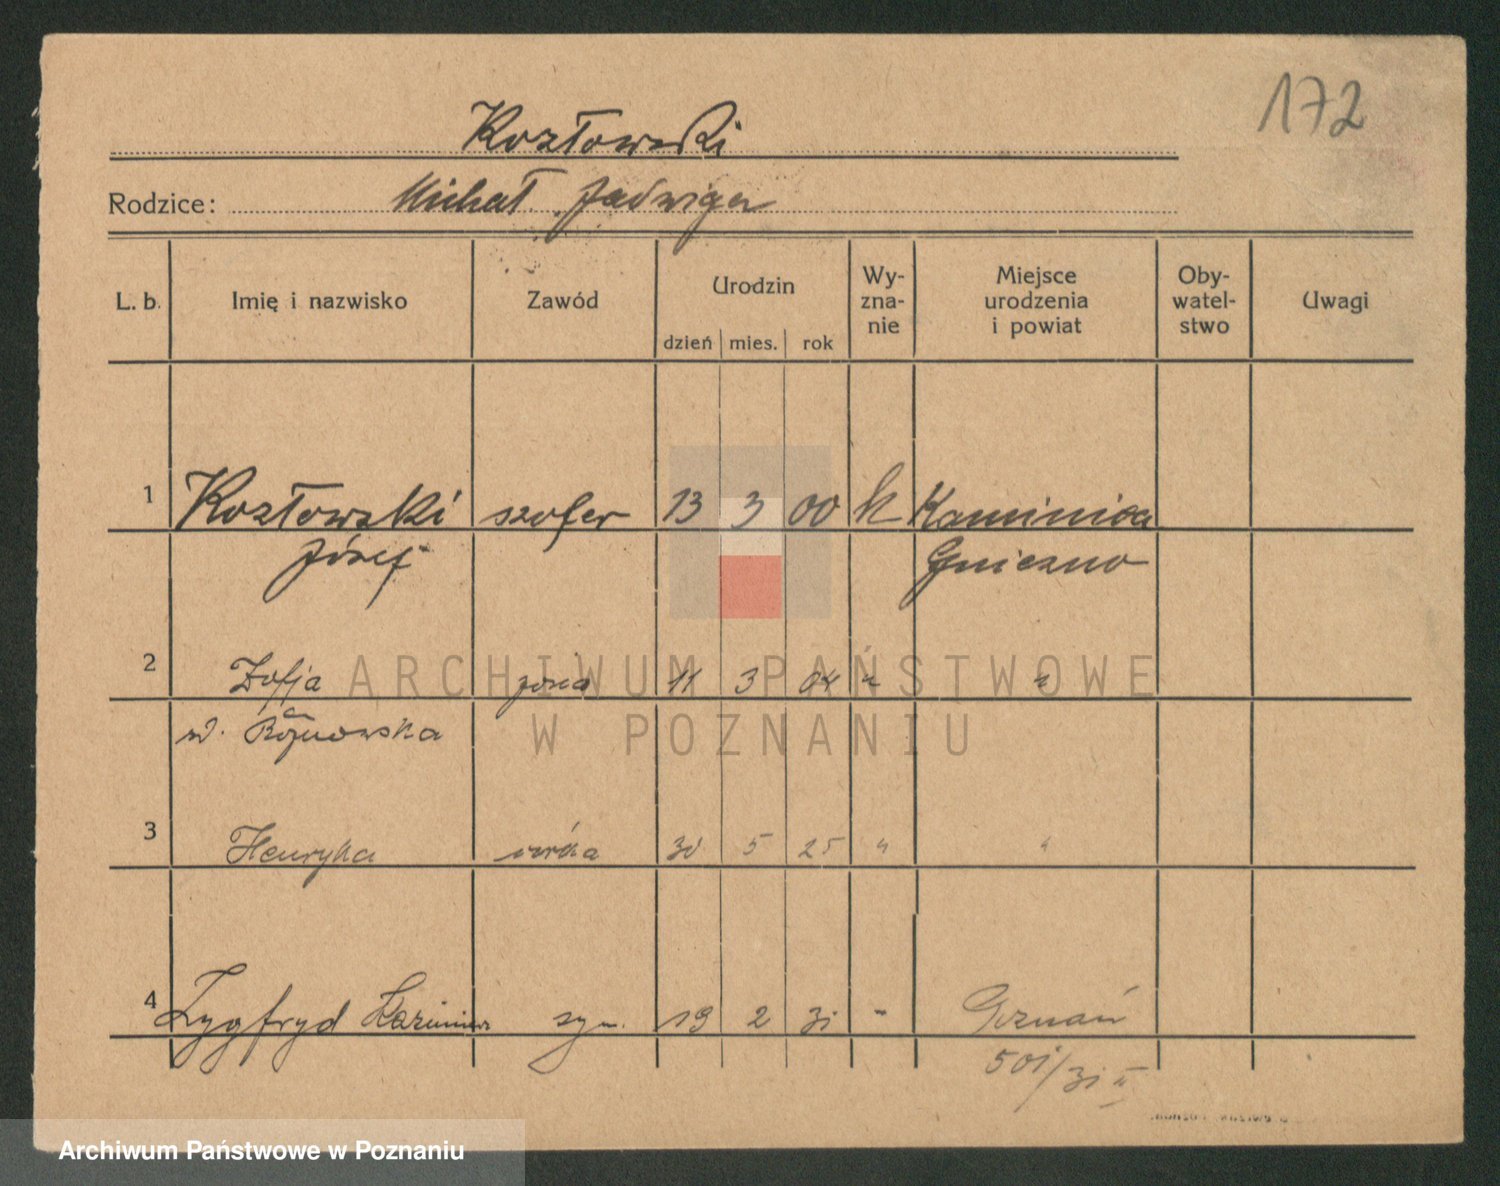 172
Kozłowski
Rodzice: Michał Jadwiga
L. b. Imię i nazwisko Zawód Urodzin dzień mies. rok Wy-zna-nie Miejsce urodzenia i powiat Oby-watel-stwo Uwagi
1 Kozłowski szofer 13 3 00 k Kaminica
Józef Gniezno
2 Zofja żona 11 3 04 " "
w Poznaniu
3 Henryka córka 30 5 25 " "
4 Zygfryd Kazimierz syn 19 2 31 " Poznań
501/31 II
ARCHIWUM PAŃSTWOWE
W POZNANIU
Archiwum Państwowe w Poznaniu